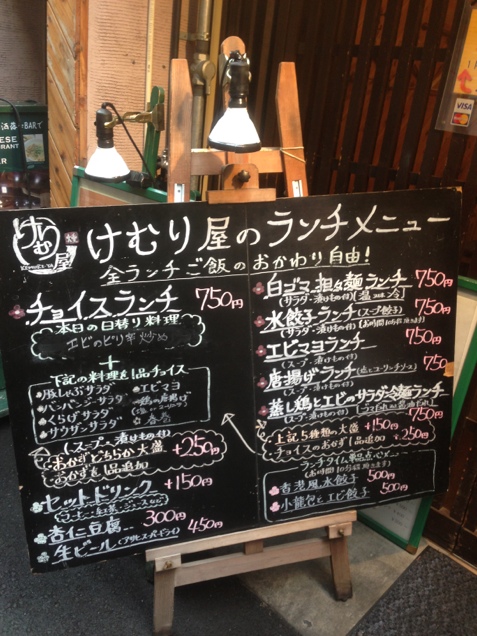 けむり屋のランチメニュー
全ランチご飯のおかわり自由!
チョイスランチ 750円
本日の日替り料理
エビのピリ辛炒め
+
下記の料理を1品チョイス
・豚しゃぶサラダ
・バンバンジーサラダ
・くらげサラダ
・サウザンサラダ
・エビマヨ
・鶏の唐揚げ
・春巻
(スープ、漬けもの付)
おかずどちらか大盛
おかずを1品追加
+250円
セットドリンク +150円
杏仁豆腐 300円
生ビール 450円
白ゴマ担々麺ランチ 750円
(サラダ・漬けもの付)
水餃子ランチ(スープ餃子) 750円
(サラダ・漬けもの付)
エビマヨランチ 750円
(スープ・漬けもの付)
唐揚げランチ 750円
(スープ・漬けもの付)
蒸し鶏とエビのサラダ冷麺ランチ
750円
上記5種類の大盛 +150円
チョイスのおかず1品追加 +250円
ランチタイム単品で
香港風水餃子 500円
小龍包とエビ餃子 500円
VISA